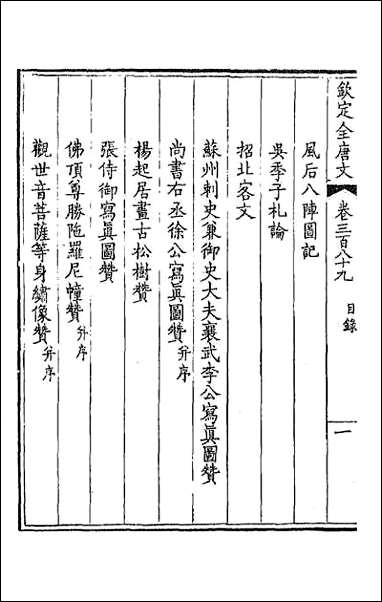 欽定全唐文 卷三百八十九 目錄 一
風后八陣圖記
吳季子札論
招北客文
蘇州刺史兼御史大夫襄武李公寫眞圖贊
尚書右丞徐公寫眞圖贊 幷序
楊起居畫古松樹贊
張侍御寫眞圖贊
佛頂尊勝陁羅尼幢贊 幷序
觀世音菩薩等身繡像贊 幷序